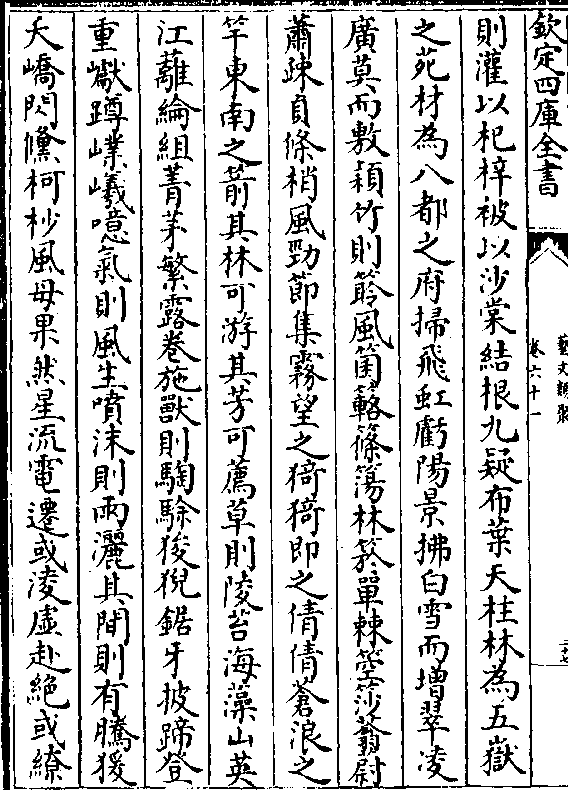 欽定四庫全書
藝文類聚
卷六十一
則灌以杞梓被以沙棠結根九疑布葉天柱林為五嶽
之苑材為八都之府掃飛虹虧陽景拂白雪而增翠凌
廣莫而敷穎竹則篈風箘簵篠簜林箊單棘箜莎蓊尉
蕭疎貞條梢風勁節集霧望之猗猗即之倩倩蒼浪之
竿東南之箭其林可游其芳可薦草則陵苕海藻山英
江蘺綸組菁茅繁露卷施獸則騊駼狻猊鋸牙披蹄登
重巘蹲嶫嶬噫氣則風生噴沫則雨灑其間則有騰猨
夭嶠閃儵柯杪風母果然星流電遷或淩虛赴絶或繚